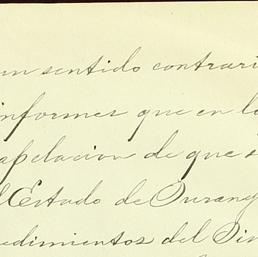 un sentido contrari
informes que en lo
apelacion de que s
l Estado de Durang
edimientos del Sin